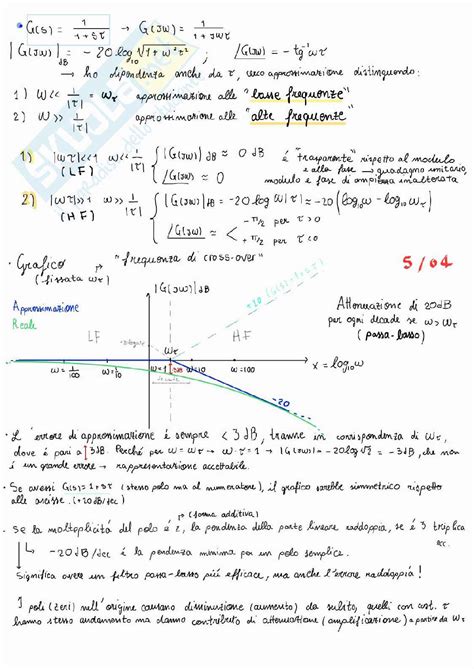 • G(s) = 1/(1+sτ) → G(jω) = 1/(1+jωτ)
|G(jω)|dB = -20 log₁₀ √(1+ω²τ²) , /G(jω) = -tg⁻¹ωτ
→ ho dipendenza anche da τ, uso approssimazione distinguendo:
1) ω << 1/|τ| = ωτ approssimazione alle "basse frequenze"
2) ω >> 1/|τ| approssimazione alle "alte frequenze"
1) |ωτ|<<1 ω << 1/|τ| (LF) { |G(jω)|dB ≈ 0 dB
/G(jω) ≈ 0
é "trasparente" rispetto al modulo
e alla fase → guadagno unitario,
modulo e fase di ampiezza inalterata
2) |ωτ|>>1 ω >> 1/|τ| (HF) { |G(jω)|dB = -20 log ω|τ| = -20 (log₁₀ω - log₁₀ωτ)
/G(jω) ≈ < -π/2 per τ>0
π/2 per τ<0
• Grafico "frequenza di cross-over" 5/04
(fissata ωτ)
|G(jω)|dB
+20 (G(s)=1+sτ)
Approssimazione
Reale
LF
HF
ωτ
Attenuazione di 20dB
per ogni decade se ω>ωτ
(passa-basso)
ω=1/100 ω=1/10 ω=1 3dB ω=10 ω=100 x = log₁₀ω
-20
• L'errore di approssimazione é sempre < 3dB, tranne in corrispondenza di ωτ,
dove é pari a 3dB. Perché per ω=ωτ → ωτ=1 → |G(jω)| = -20 log√2 = -3dB, che non
é un grande errore → rappresentazione accettabile.
• Se avessi G(s)=1+sτ (stesso polo ma al numeratore), il grafico sarebbe simmetrico rispetto
alle ascisse. (+20dB/dec)
(forma additiva)
• Se la molteplicitá del polo é 2, la pendenza della parte lineare raddoppia, se é 3 triplica
ecc.
→ -20dB/dec é la pendenza minima per un polo semplice.
Significa avere un filtro passa-basso piú efficace, ma anche l'errore raddoppia!
I poli (zeri) nell'origine causano diminuzione (aumento) da subito, quelli con cost. τ
hanno stesso andamento ma danno contributo di attenuazione (amplificazione) a partire da ωτ